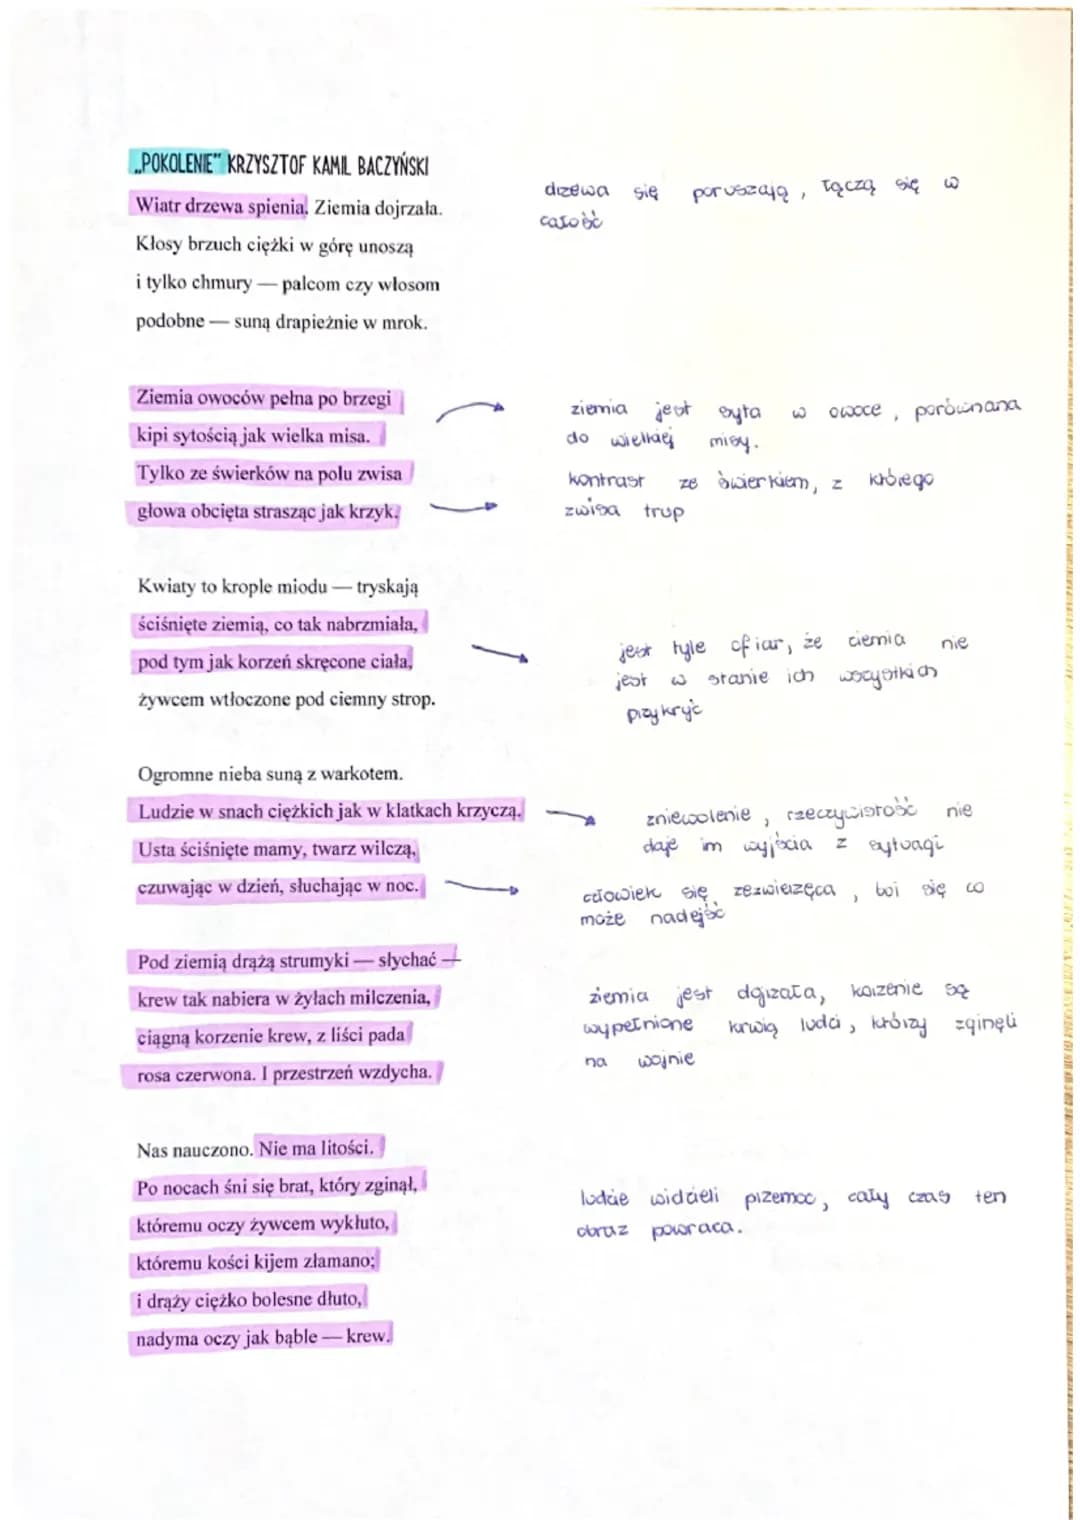 „POKOLENIE" KRZYSZTOF KAMIL BACZYŃSKI
Wiatr drzewa spienia. Ziemia dojrzała.
drzewa się poruszają, łączą się w
całość
Kłosy brzuch ciężki w górę unoszą
i tylko chmury — palcom czy włosom
podobne — suną drapieżnie w mrok.
Ziemia owoców pełna po brzegi
kipi sytością jak wielka misa.
ziemia jest syta w owoce, porównana
do wielkiej misy.
Tylko ze świerków na polu zwisa
głowa obcięta strasząc jak krzyk.
kontrast ze świerkiem, z którego
zwisa trup
Kwiaty to krople miodu — tryskają
ściśnięte ziemią, co tak nabrzmiała,
pod tym jak korzeń skręcone ciała,
żywcem wtłoczone pod ciemny strop.
jest tyle ofiar, że ziemia nie
jest w stanie ich wszystkich
przykryć
Ogromne nieba suną z warkotem.
Ludzie w snach ciężkich jak w klatkach krzyczą.
zniewolenie, rzeczywistość nie
daje im wyjścia z sytuacji
Usta ściśnięte mamy, twarz wilczą,
czuwając w dzień, słuchając w noc.
człowiek się zezwierzęca, boi się co
może nadejść
Pod ziemią drążą strumyki — słychać —
krew tak nabiera w żyłach milczenia,
ciągną korzenie krew, z liści pada
rosa czerwona. I przestrzeń wzdycha.
ziemia jest dojrzała, korzenie są
wypełnione krwią ludzi, którzy zginęli
na wojnie
Nas nauczono. Nie ma litości.
Po nocach śni się brat, który zginął,
któremu oczy żywcem wykłuto,
któremu kości kijem złamano;
i drąży ciężko bolesne dłuto,
nadyma oczy jak bąble — krew.
ludzie widzieli przemoc, cały czas ten
obraz powraca.